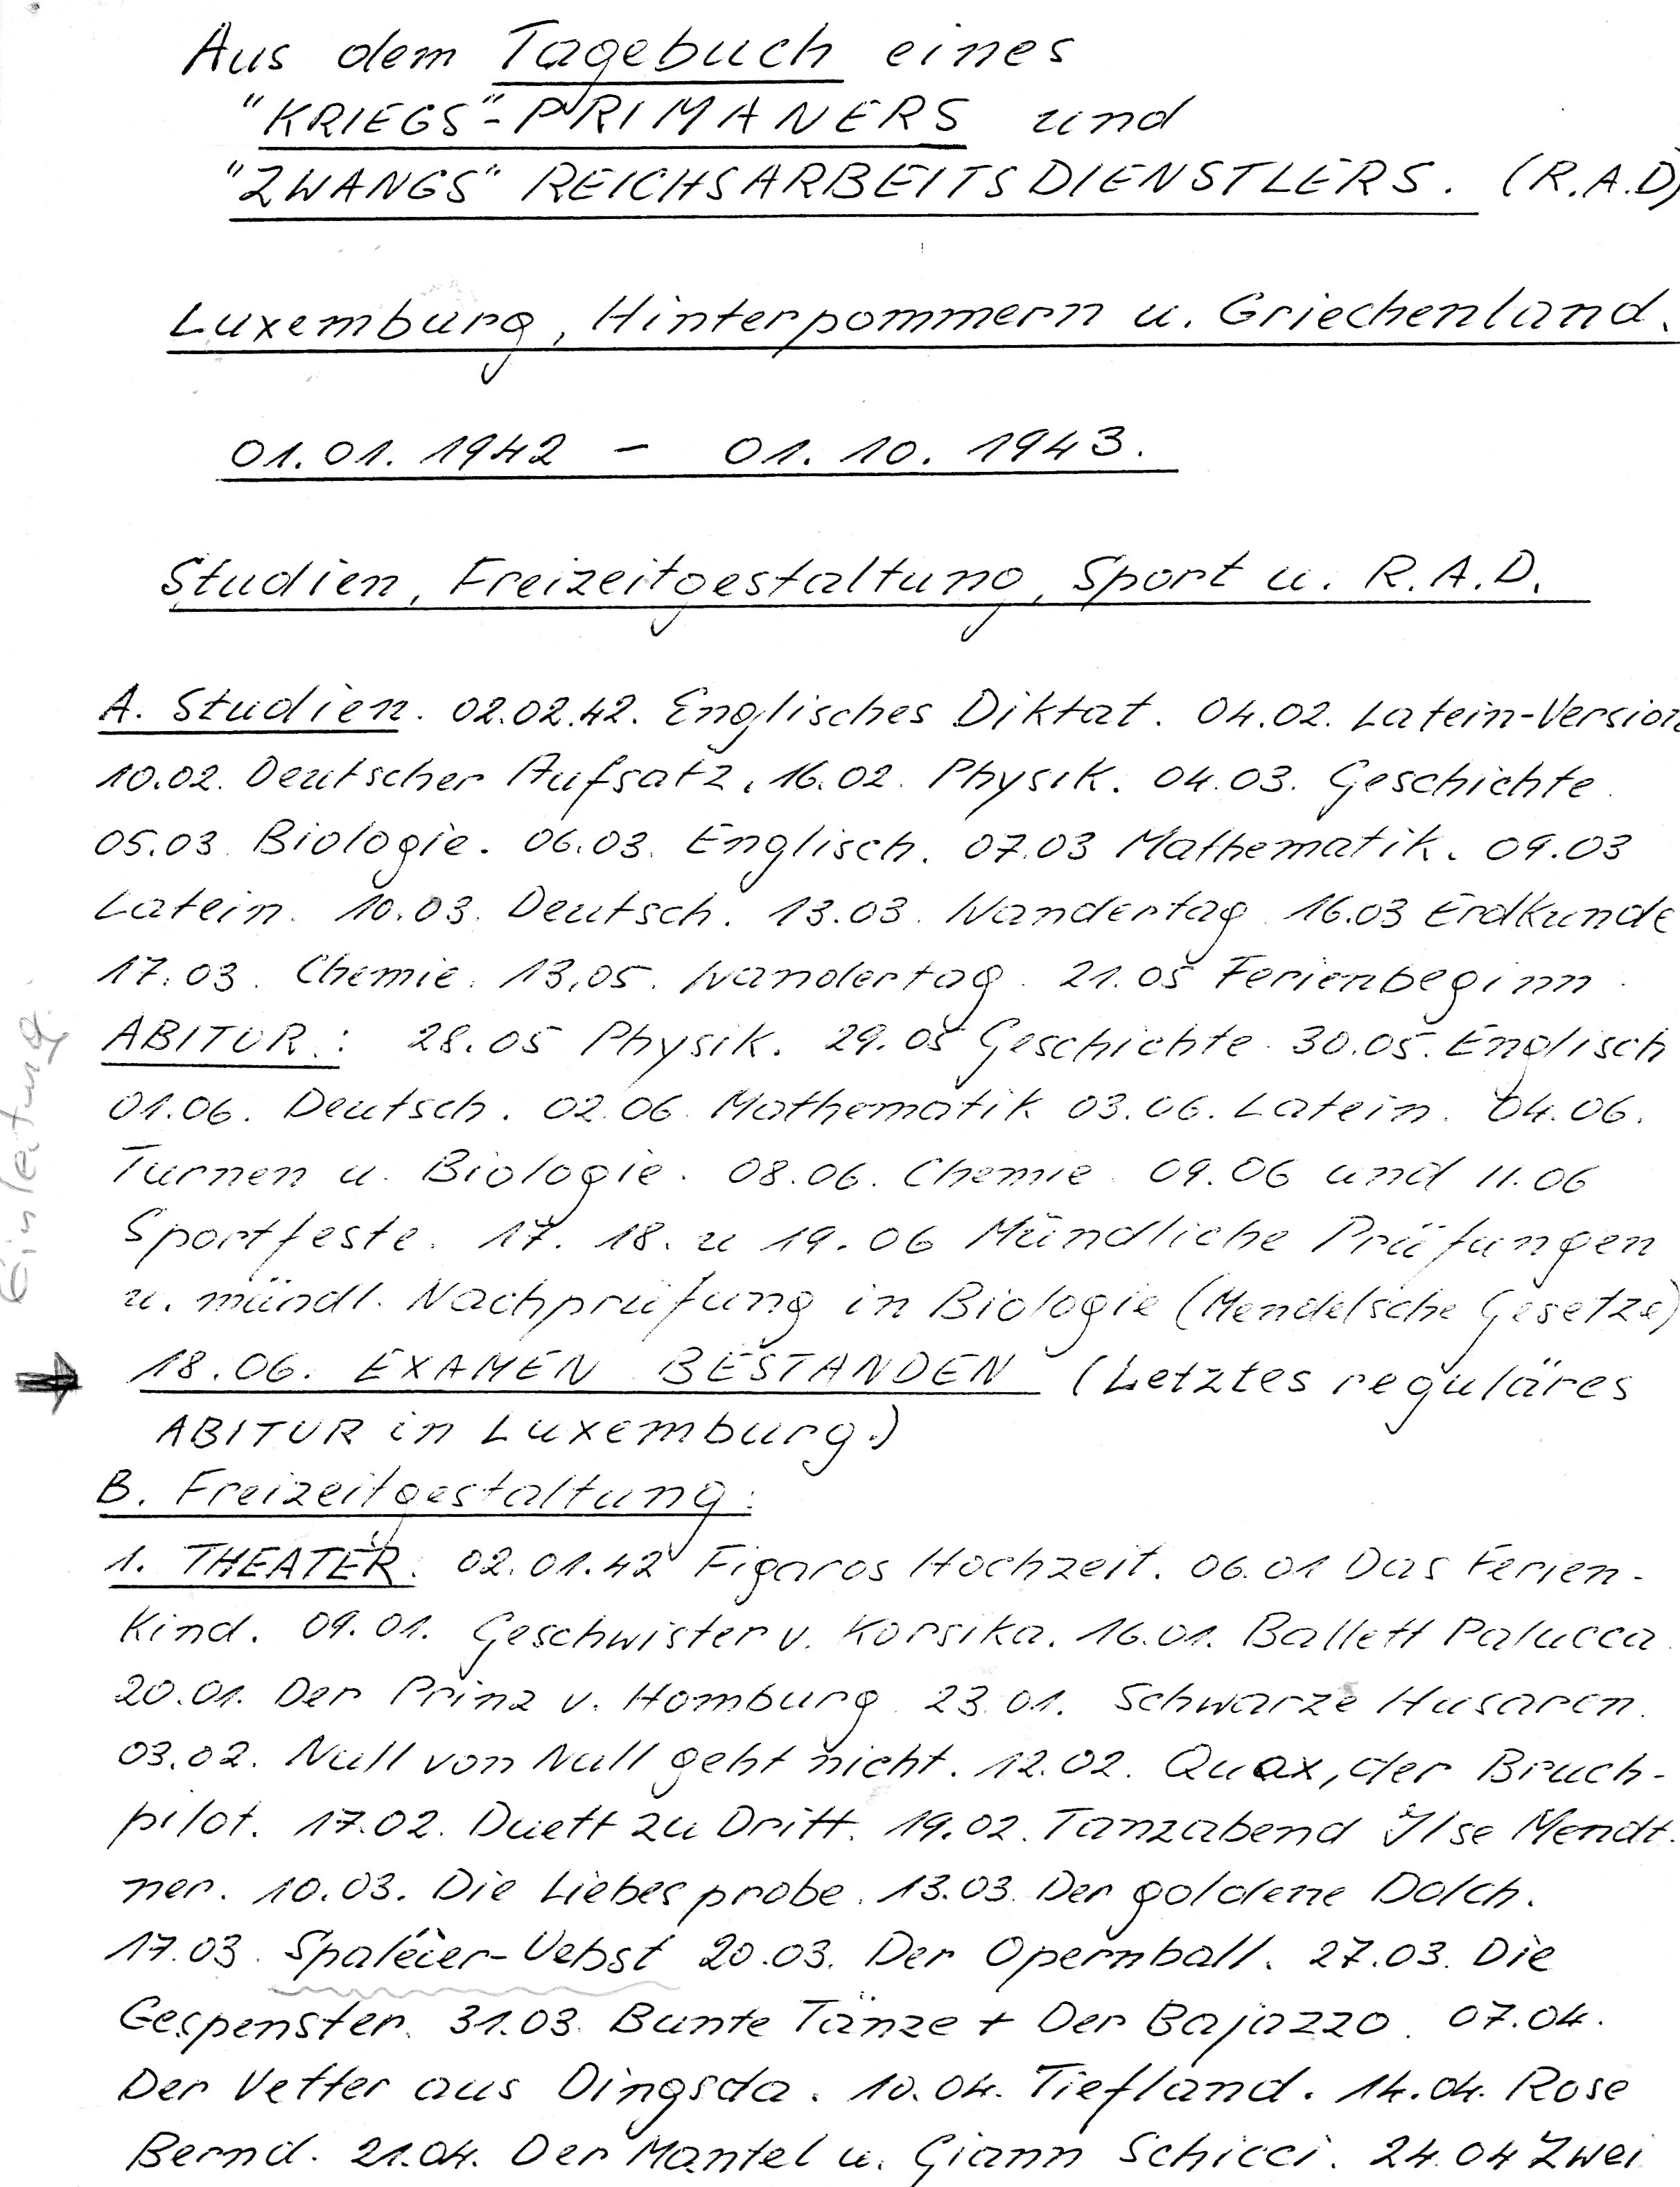 Aus dem Tagebuch eines
"KRIEGS"-PRIMANERS und
"ZWANGS" REICHSARBEITSDIENSTLERS. (R.A.D)
Luxemburg, Hinterpommern u. Griechenland.
01.01.1942 - 01.10.1943.
Studien, Freizeitgestaltung, Sport u. R.A.D.
A. Studien. 02.02.42. Englisches Diktat. 04.02. Latein-Version
10.02. Deutscher Aufsatz. 16.02. Physik. 04.03. Geschichte.
05.03. Biologie. 06.03. Englisch. 07.03 Mathematik. 09.03
Latein. 10.03. Deutsch. 13.03. Wandertag. 16.03 Erdkunde
17.03. Chemie. 13.05. Wandertag. 21.05 Ferienbeginn.
ABITUR.: 28.05 Physik. 29.05 Geschichte. 30.05. Englisch
01.06. Deutsch. 02.06. Mathematik 03.06. Latein. 04.06.
Turnen u. Biologie. 08.06. Chemie. 09.06 und 11.06
Sportfeste. 17. 18. u 19.06 Mündliche Prüfungen
u. mündl. Nachprüfung in Biologie (Mendelsche Gesetze)
Einleitung.
18.06. EXAMEN BESTANDEN (Letztes reguläres
ABITUR in Luxemburg.)
B. Freizeitgestaltung:
1. THEATER. 02.01.42 Figaros Hochzeit. 06.01 Das Ferien-
Kind. 09.01. Geschwister v. Korsika. 16.01. Ballett Palucca.
20.01. Der Prinz v. Homburg. 23.01. Schwarze Husaren.
03.02. Null von Null geht nicht. 12.02. Quax, der Bruch-
pilot. 17.02. Duett zu Dritt. 19.02. Tanzabend Ilse Mendt.
ner. 10.03. Die Liebesprobe. 13.03. Der goldene Dolch.
17.03. 20.03. Der Opernball. 27.03. Die
Gespenster. 31.03. Bunte Tänze + Der Bajazzo. 07.04.
Der Vetter aus Dingsda. 10.04. Tiefland. 14.04. Rose
Bernd. 21.04. Der Mantel u. Giann Schicci. 24.04 Zwei